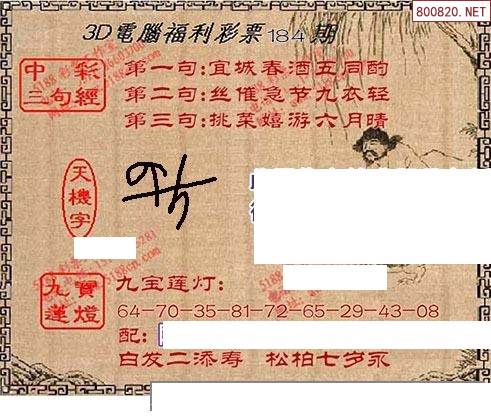 800820.NET
3D電腦福利彩票184期
中彩
三句經
第一句:宜城春酒五同酌
第二句:丝催急节九衣轻
第三句:挑菜嬉游六月晴
天機字
九寶
蓮燈
九宝莲灯:
64-70-35-81-72-65-29-43-08
配:
白发二添寿 松柏七岁永